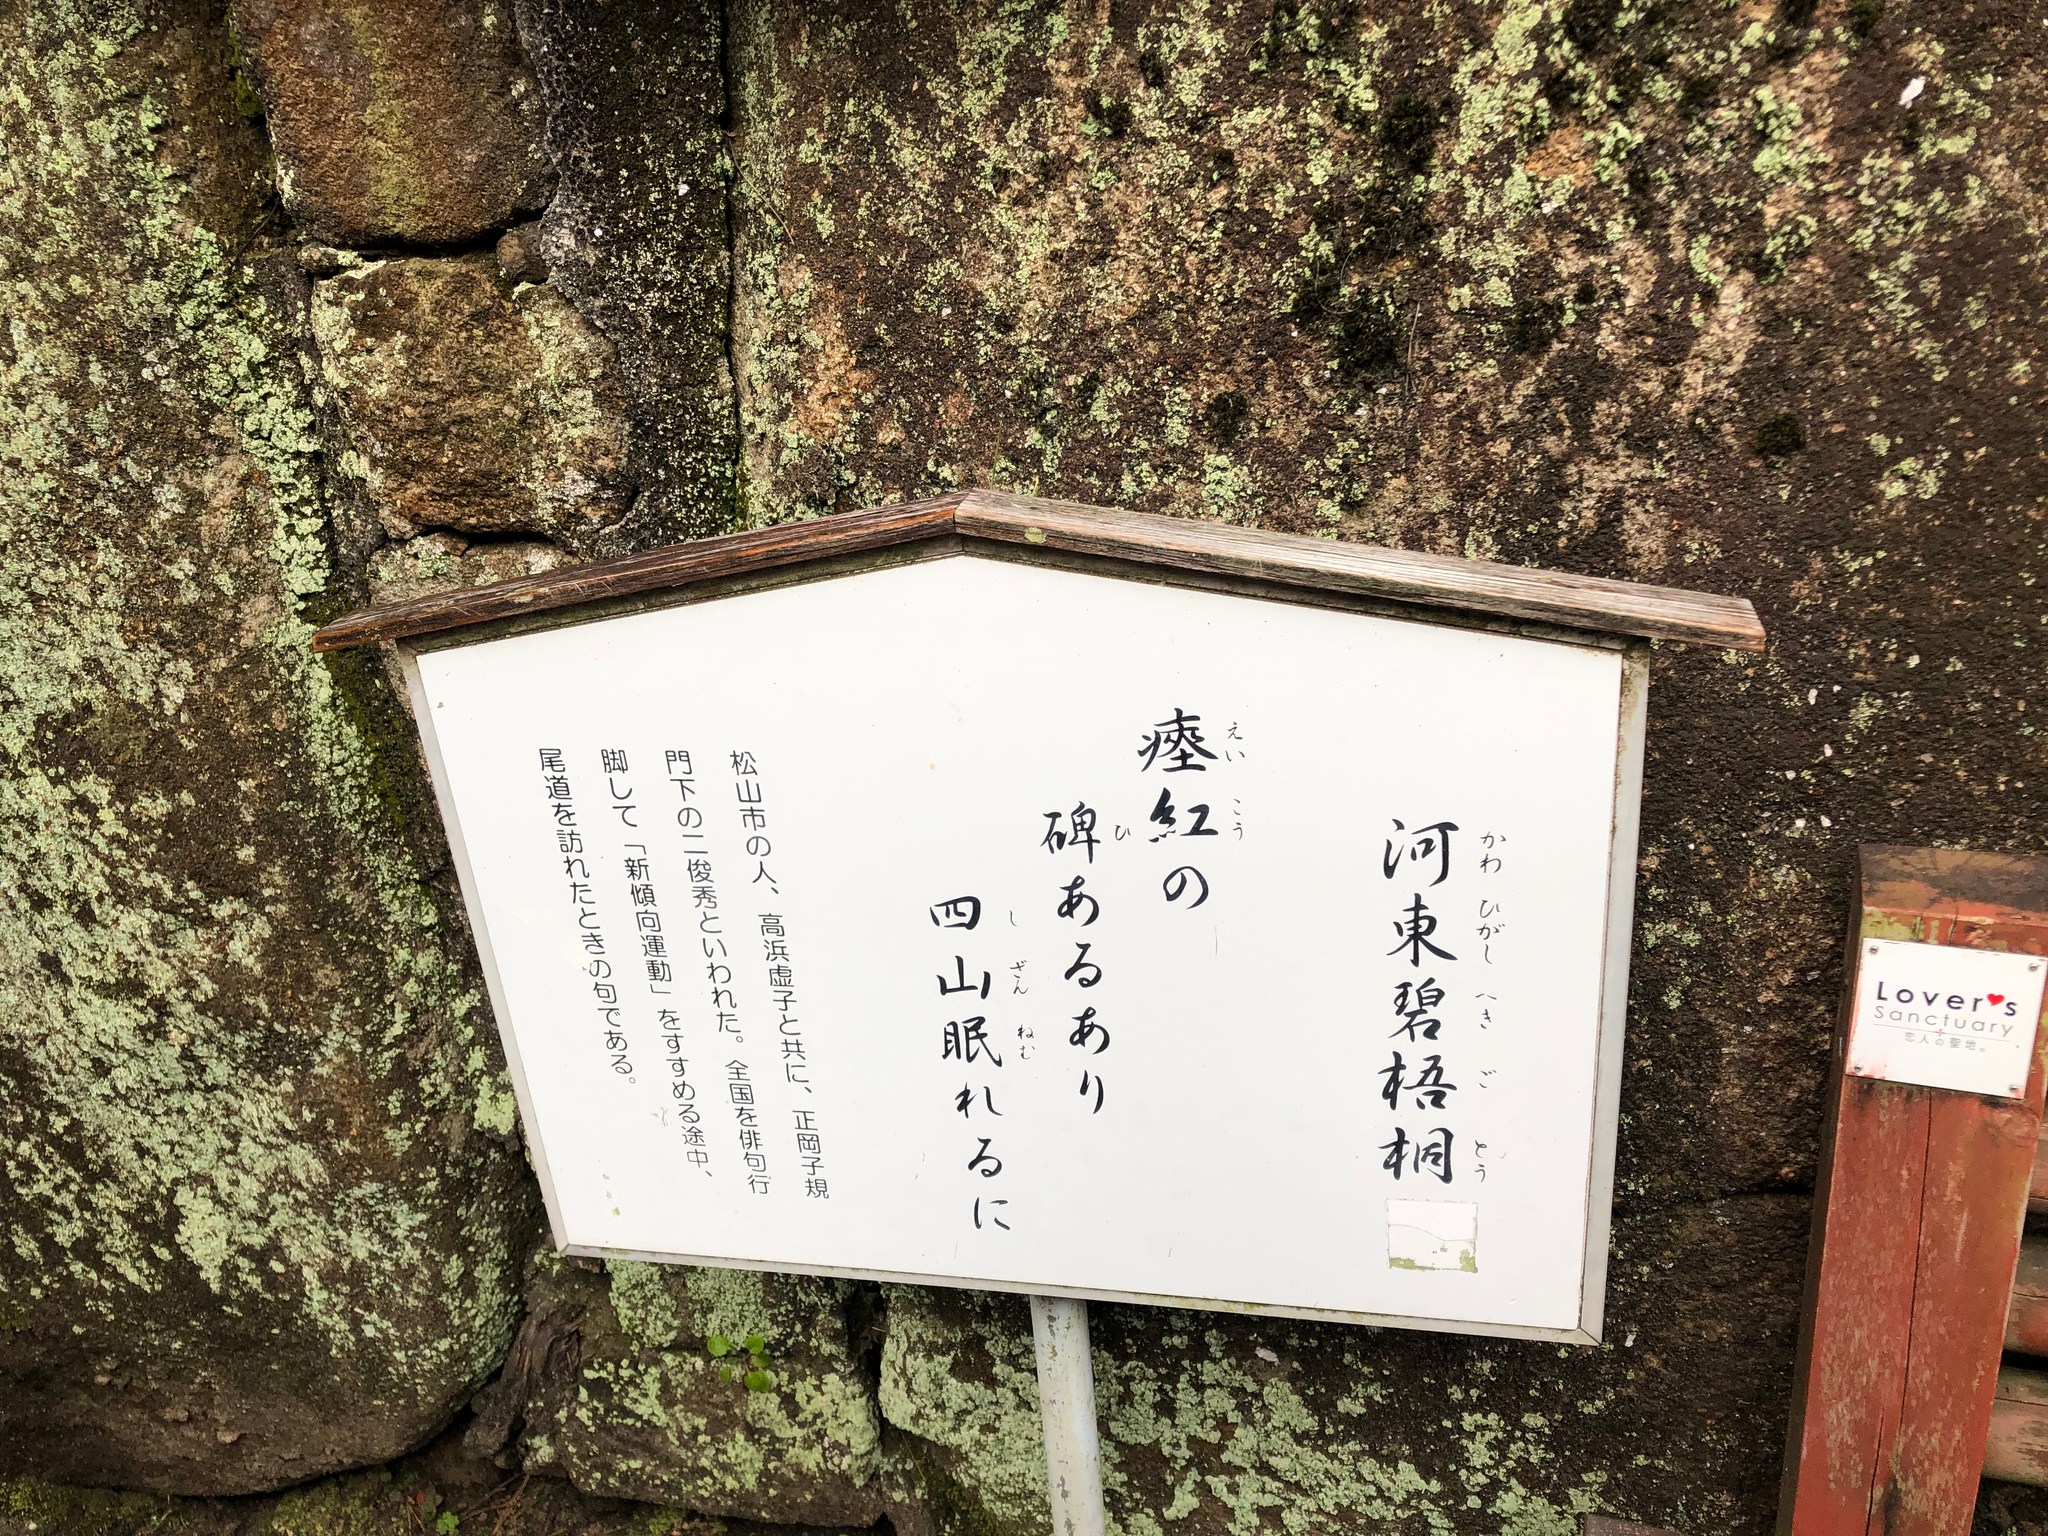 河東碧梧桐
かわひがしへきごとう
瘞紅の
えいこう
碑あるあり
ひ
四山眠れるに
しざんねむ
松山市の人、高浜虚子と共に、正岡子規
門下の二俊秀といわれた。全国を俳句行
脚して「新傾向運動」をすすめる途中、
尾道を訪れたときの句である。
Lover's
Sanctuary
恋人の聖地。